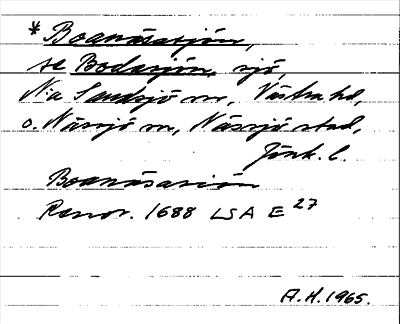 * Boanäsasjön,
se Bodasjön, sjö,
N:a Sandsjö sn, Västra hd,
o. Nässjö sn, Nässjö stad,
Jönk. l.
Boanäsasiön
Renov. 1688 LSA E 27
A.H. 1965.